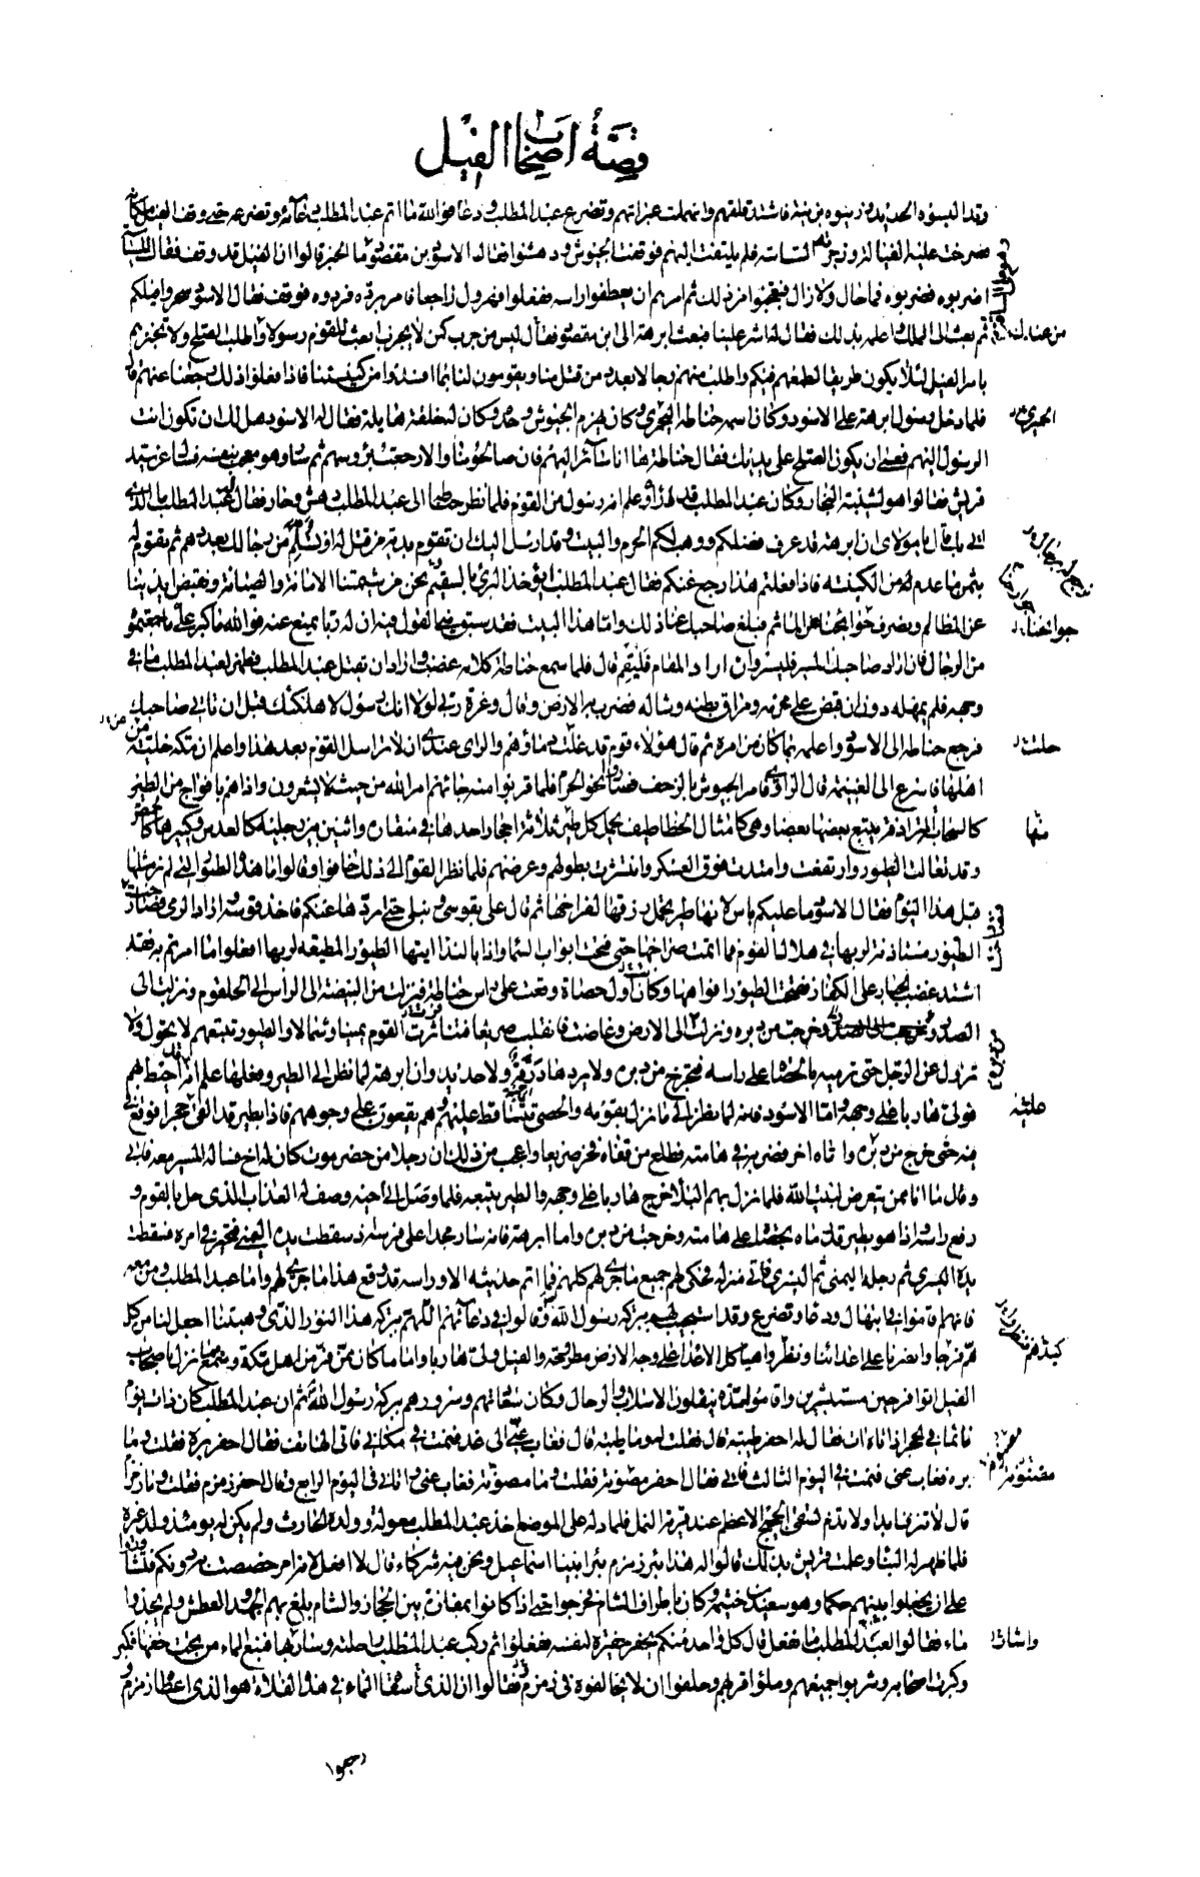 قصة اصحاب الفيل
وقد البسوه الحديد وزينوه بزينة فاشتد قلقهم وانهملت عبراتهم وتضرع عبد المطلب ودعا فوالله ما اتم عبد المطلب دعآئه وتضرعه حتى وقف الفيل مكانه
فصرخت عليه الفيالة وزجرته الساسة فلم يلتفت اليهم فوقفت الجيوش ودهشوا فقال الاسود بن مقصود ما الخبر قالوا ان الفيل قد وقف فقال للساسة
اضربوه فضربوه فما حال ولا زال فتعجبوا من ذلك ثم امرهم ان يعطفوا راسه ففعلوا فهرول راجعا فامر برده فردوه فوقف فقال الاسود سحروا فيلكم
ثم بعث الى الملك واعلمه بذلك فقال له اشر علينا فبعث ابرهة الى ابن مقصود فقال ليس من جرب كمن لا يجرب ابعث للقوم رسولا واطلب الصلح ولا تخبرهم
بامر الفيل لئلا يكون طريقا لطمعهم فيكم واطلب منهم رجالا بعدد من قتل منا ويقومون لنا بما افسدوا من كنيستنا فاذا فعلوا ذلك رجعنا عنهم
فلما دخل رسول ابرهة على الاسود وكان اسمه حناطة الحميري وكان يهزم الجيوش وحده وكان له خلقة هايلة فقال له الاسود هل لك ان تكون انت
الرسول اليهم فعسى ان يكون الصلح على يديك فقال حناطة ها انا سآئر اليهم فان صالحونا والا رجعت برؤسهم ثم سار وهو معجب بنفسه فسال عن سيد
قريش فقالوا هو لشيبة النجار وكان عبد المطلب قد راه وعلم انه رسول من القوم فلما نظر حناطة الى عبد المطلب دهش وحار فقال له عبد المطلب ما الذي
اتى بك قال يا مولاى ان ابرهة قد عرف فضلكم ووهب لكم الحرم والبيت وقد ارسل اليك ان تقوم بدية من قتل له او تسلم من رجالك بعددهم ثم تقوم له
بثمن ما عدم له من الكنيسة فاذا فعلتم هذا رجع عنكم فقال عبد المطلب ايؤخذ البرئ بالسقيم ونحن من شيمتنا الامانة والصيانة ونقبض ايدينا
عن المظالم ونصرف جوارحنا عن الماثم فبلغ صاحبك عنا ذلك واما هذا البيت فقد سبق منا القول فيه ان له ربا يمنع عنه فوالله ما كبر علي ما جمعتموه
من الرجال فان اراد صاحبك المسير فليسر وان اراد المقام فليقم قال فلما سمع حناطة كلامه غضب واراد ان يقتل عبد المطلب فظهر لعبد المطلب ما في
وجهه فلم يمهله دون ان قبض على محزمه ومراق بطنه وشاله فضرب به الارض وقال وعزة ربي لولا انك رسول لاهلكتك قبل ان تاتي صاحبك
فرجع حناطة الى الاسود واعلمه بما كان من امره ثم قال هؤلاء قوم قد غلت دماؤهم والراى عندى ان لا تراسل القوم بعد هذا واعلم ان مكة خلية من
اهلها فاسرع الى الغنيمة قال الراوى فامر الجيوش بالزحف فساروا نحو الحرم فلما قربوا منه جائهم امر الله من حيث لا يشعرون واذا هم بافواج من الطير
كالسحاب المترادفة يتبع بعضها بعضا وهى كامثال الخطاطيف يحمل كل طير ثلاثة احجار واحد هافي منقاره واثنين بين رجليه كالعدس وكبيرها كالحمص
وقد تعالت الطيور وارتفعت وامتدت فوق العسكر وانتشرت بطولهم وعرضهم فلما نظر القوم الى ذلك خافوا وقالوا ما هذه الطيور التي لم نر مثلها
قبل هذا اليوم فقال الاسود ما عليكم باس لانها طير تحمل رزقها لفراخها ثم قال علي بقوسي ونبلي حتى اردها عنكم فاخذ قوسه واراد الرمى
الطيور مستاذنة لربها في هلاك القوم فما اتمت صراخها حتى فتحت ابواب السماء واذا بالندا ايتها الطيور المطيعة لربها افعلوا ما امرتم به فقد
اشتد غضب الجبار على الكفار ففتحت الطيور افواهها وكان اول حصاة وقعت على راس حناطة فنزلت من البيضة الى الراس الى الحلقوم ونزلت الى
الصدر وخرجت من دبره ونزلت الى الارض وغاصت فانقلب صريعا فتناثرت القوم يمينا وشمالا والطيور تتبعهم لا تحول ولا
تزول عن الرجل حتى ترميه بالحصاة على راسه فتخرج من دبره ولا يردها درقة ولا حديد وان ابرهة لما نظر الى الطير وفعلها علم انه احيط بهم
فولى هاربا على وجهه واما الاسود فانه لما نظر الى ما نزل بقومه والحصى تتساقط عليهم وهم يقعون على وجوههم فاذا بطير قد القى حجرا فوقع في
فيه حتى خرج من دبره واتاه اخر فضربه في هامته فطلع من قفاه فخر صريعا واعجب من ذلك ان رجلا من حضرموت كان له اخ فساله المسير معه فابى
وقال ما انا ممن يتعرض لبيت الله فلما نزل بهم البلا خرج هاربا على وجهه والطير يتبعه فلما وصل الى اخيه وصف له العذاب الذى حل بالقوم و
رفع راسه اذا هو بطير قد رماه بحصاة على هامته وخرجت من دبره واما ابرهة فانه سار مجدا على فرسه اذ سقطت يده اليمنى فتحير في امره فسقطت
يده اليسرى ثم رجله اليمنى ثم اليسرى فاتى منزله فحكى لهم جميع ما جرى لهم كلهم فما اتم حديثه الا وراسه قد وقع هذا ما جرى لهم واما عبد المطلب ومن معه
فانهم اقاموا في ابتهال ودعاء وتضرع وقد استجيب لهم ببركة رسول الله وقالوا في دعآئهم اللهم ببركة هذا النور الذى وهبتنا اجعل لنا من كل
هم فرجا وانصرنا على اعدائنا ونظروا هياكل الاعداء على وجه الارض مطروحة والفيل ولى هاربا واما ما كان ممن فر من اهل مكة وسمع بما نزل باصحاب
الفيل اتوا فرحين مستبشرين واقاموا مدة ينقلون الاسلاب والرحال وكان سعادتهم وسرورهم ببركة رسول الله ثم ان عبد المطلب كان ذات يوم
نائما في الحجر اذ اتاه آت فقال له احفر طيبة قال فقلت له وما طيبة قال فغاب عني الى غد فنمت في مكاني فاتى الهاتف فقال احفر برة فقلت وما
برة فغاب عني فنمت في اليوم الثالث فاتى فقال احفر مضنونة فقلت وما مضنونة فغاب عني واتاني في اليوم الرابع وقال احفر زمزم فقلت وما زمزم
قال لا تنزف ابدا ولا تذم تسقى الحجيج الاعظم عند قرية النمل فلما دله على الموضع اخذ عبد المطلب معوله وولده الحارث ولم يكن له يومئذ ولد غيره
فلما ظهر له البناء وعلمت قريش بذلك قالوا له هذا بئر زمزم بئر ابينا اسماعيل ونحن فيه شركاء قال لا افعل لانه امر خصصت به دونكم فتشاوروا
على ان يجعلوا بينهم حكما وهو سعيد بن خيثمة وكان باطراف الشام فخرجوا حتى اذا كانوا بمفازة بين الحجاز والشام بلغ بهم الجهد والعطش ولم يجدوا
ماء فقالوا لعبد المطلب ما نفعل قال كل واحد منكم يحفر حفرة لنفسه ففعلوا ثم ركب عبد المطلب راحلته وسار بها فنبع الماء من تحت خفها فكبر
وكبرت اصحابه وشربوا جميعهم وملؤا قربهم وحلفوا ان لا يخالفوه في زمزم فقالوا ان الذى اسقانا الماء في هذه الفلاة هو الذى اعطاك زمزم
رجعوا